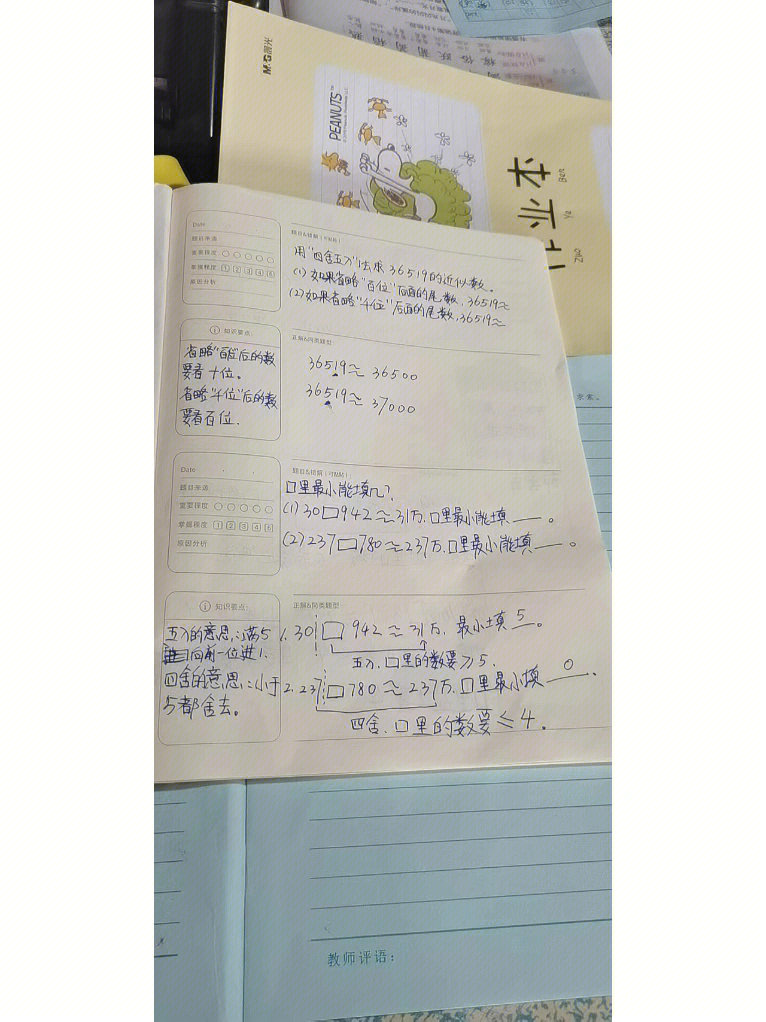 M&G晨光
PEANUTS
作业本
Zuo Ye Ben
Date
题目来源
重要程度
掌握程度 1 2 3 4 5
原因分析
题目&错解（可粘贴）
用"四舍五入"法求36519的近似数。
(1)如果省略"百位"后面的尾数,36519≈
(2)如果省略"千位"后面的尾数,36519≈
知识要点:
省略"百位"后的数
要看十位。
省略"千位"后的数
要看百位.
正解&同类题型
36519≈36500
36519≈37000
Date
题目来源
重要程度
掌握程度 1 2 3 4 5
原因分析
题目&错解（可粘贴）
口里最小能填几?
(1)30□942≈31万.口里最小能填___。
(2)237□780≈237万.口里最小能填___。
知识要点:
五入的意思:满5
向前一位进1.
四舍的意思:小于
5都舍去。
正解&同类题型
1. 30□942≈31万. 最小填 5 。
五入.口里的数要≥5.
2. 237□780≈237万.口里最小填 0 .
四舍.口里的数要≤4.
教师评语: